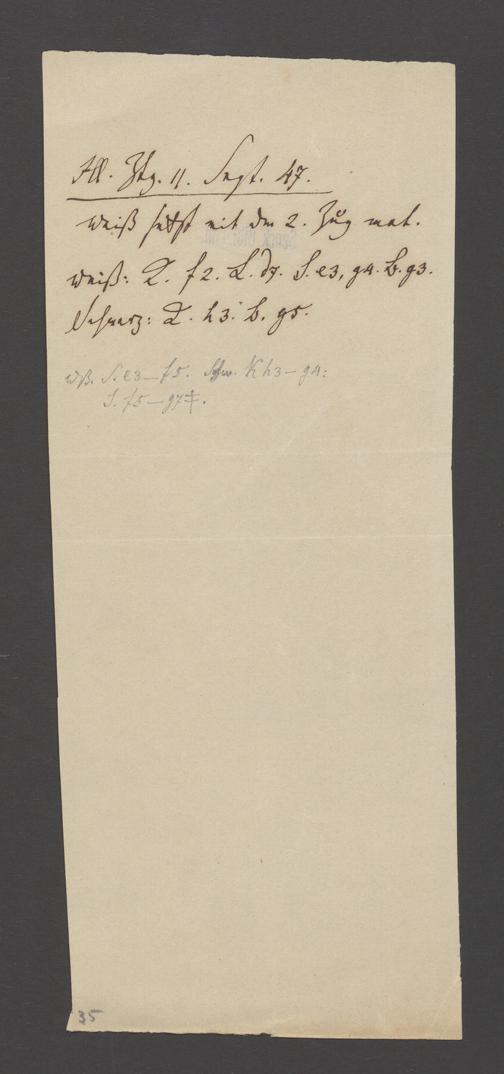 Ill. Ztg. 11. Sept. 47.
Weiß setzt mit dm 2. Zug mat.
Weiß: K. f2. L. d7. S. e3, g4. B. g3.
Schwarz: K. h3. B. g5.
Wß. S. e3–f5. Schw. K h3–g4:
S. f5–g7‡.
35